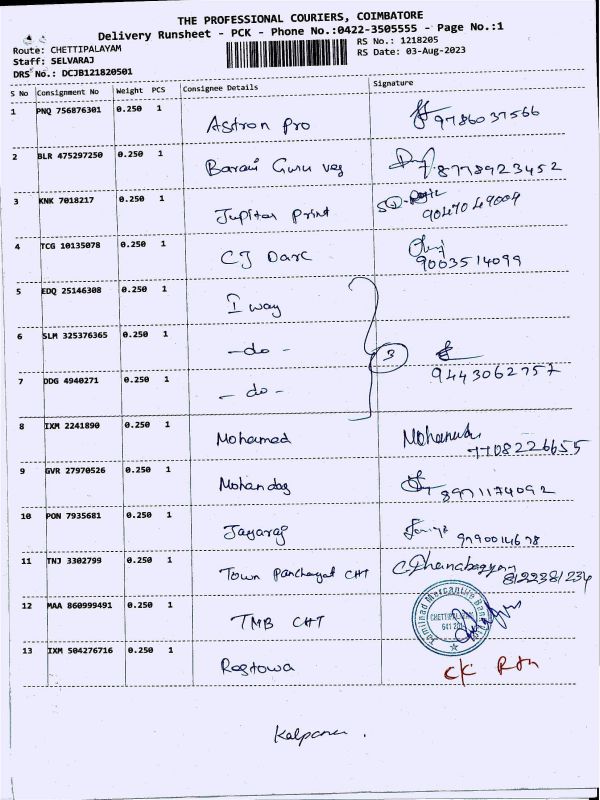 THE PROFESSIONAL COURIERS, COIMBATORE
Delivery Runsheet - PCK - Phone No.:0422-3505555 - Page No.:1
Route: CHETTIPALAYAM
RS No.: 1218205
Staff: SELVARAJ
RS Date: 03-Aug-2023
DRS No.: DCJB121820501
S No Consignment No Weight PCS Consignee Details Signature
1 PNQ 756876301 0.250 1 Astron Pro 9786037566
2 BLR 475297250 0.250 1 Barani Guru veg 8778923452
3 KNK 7018217 0.250 1 Jupiter Print 9047049009
4 TCG 10135078 0.250 1 CJ Darc 9003514099
5 EDQ 25146308 0.250 1 I way
6 SLM 325376365 0.250 1 - do - 3
7 DDG 4940271 0.250 1 - do - 9443062757
8 IXM 2241890 0.250 1 Mohamed 7708226655
9 GVR 27970526 0.250 1 Mohandas 8971174092
10 PON 7935681 0.250 1 Jayaraj 9790014678
11 TNJ 3302799 0.250 1 Town Panchayat CHT 8122381234
12 MAA 860999491 0.250 1 TMB CHT
Tamilnad Mercantile Bank Ltd
CHETTIPALAYAM
13 IXM 504276716 0.250 1
Kalpana .